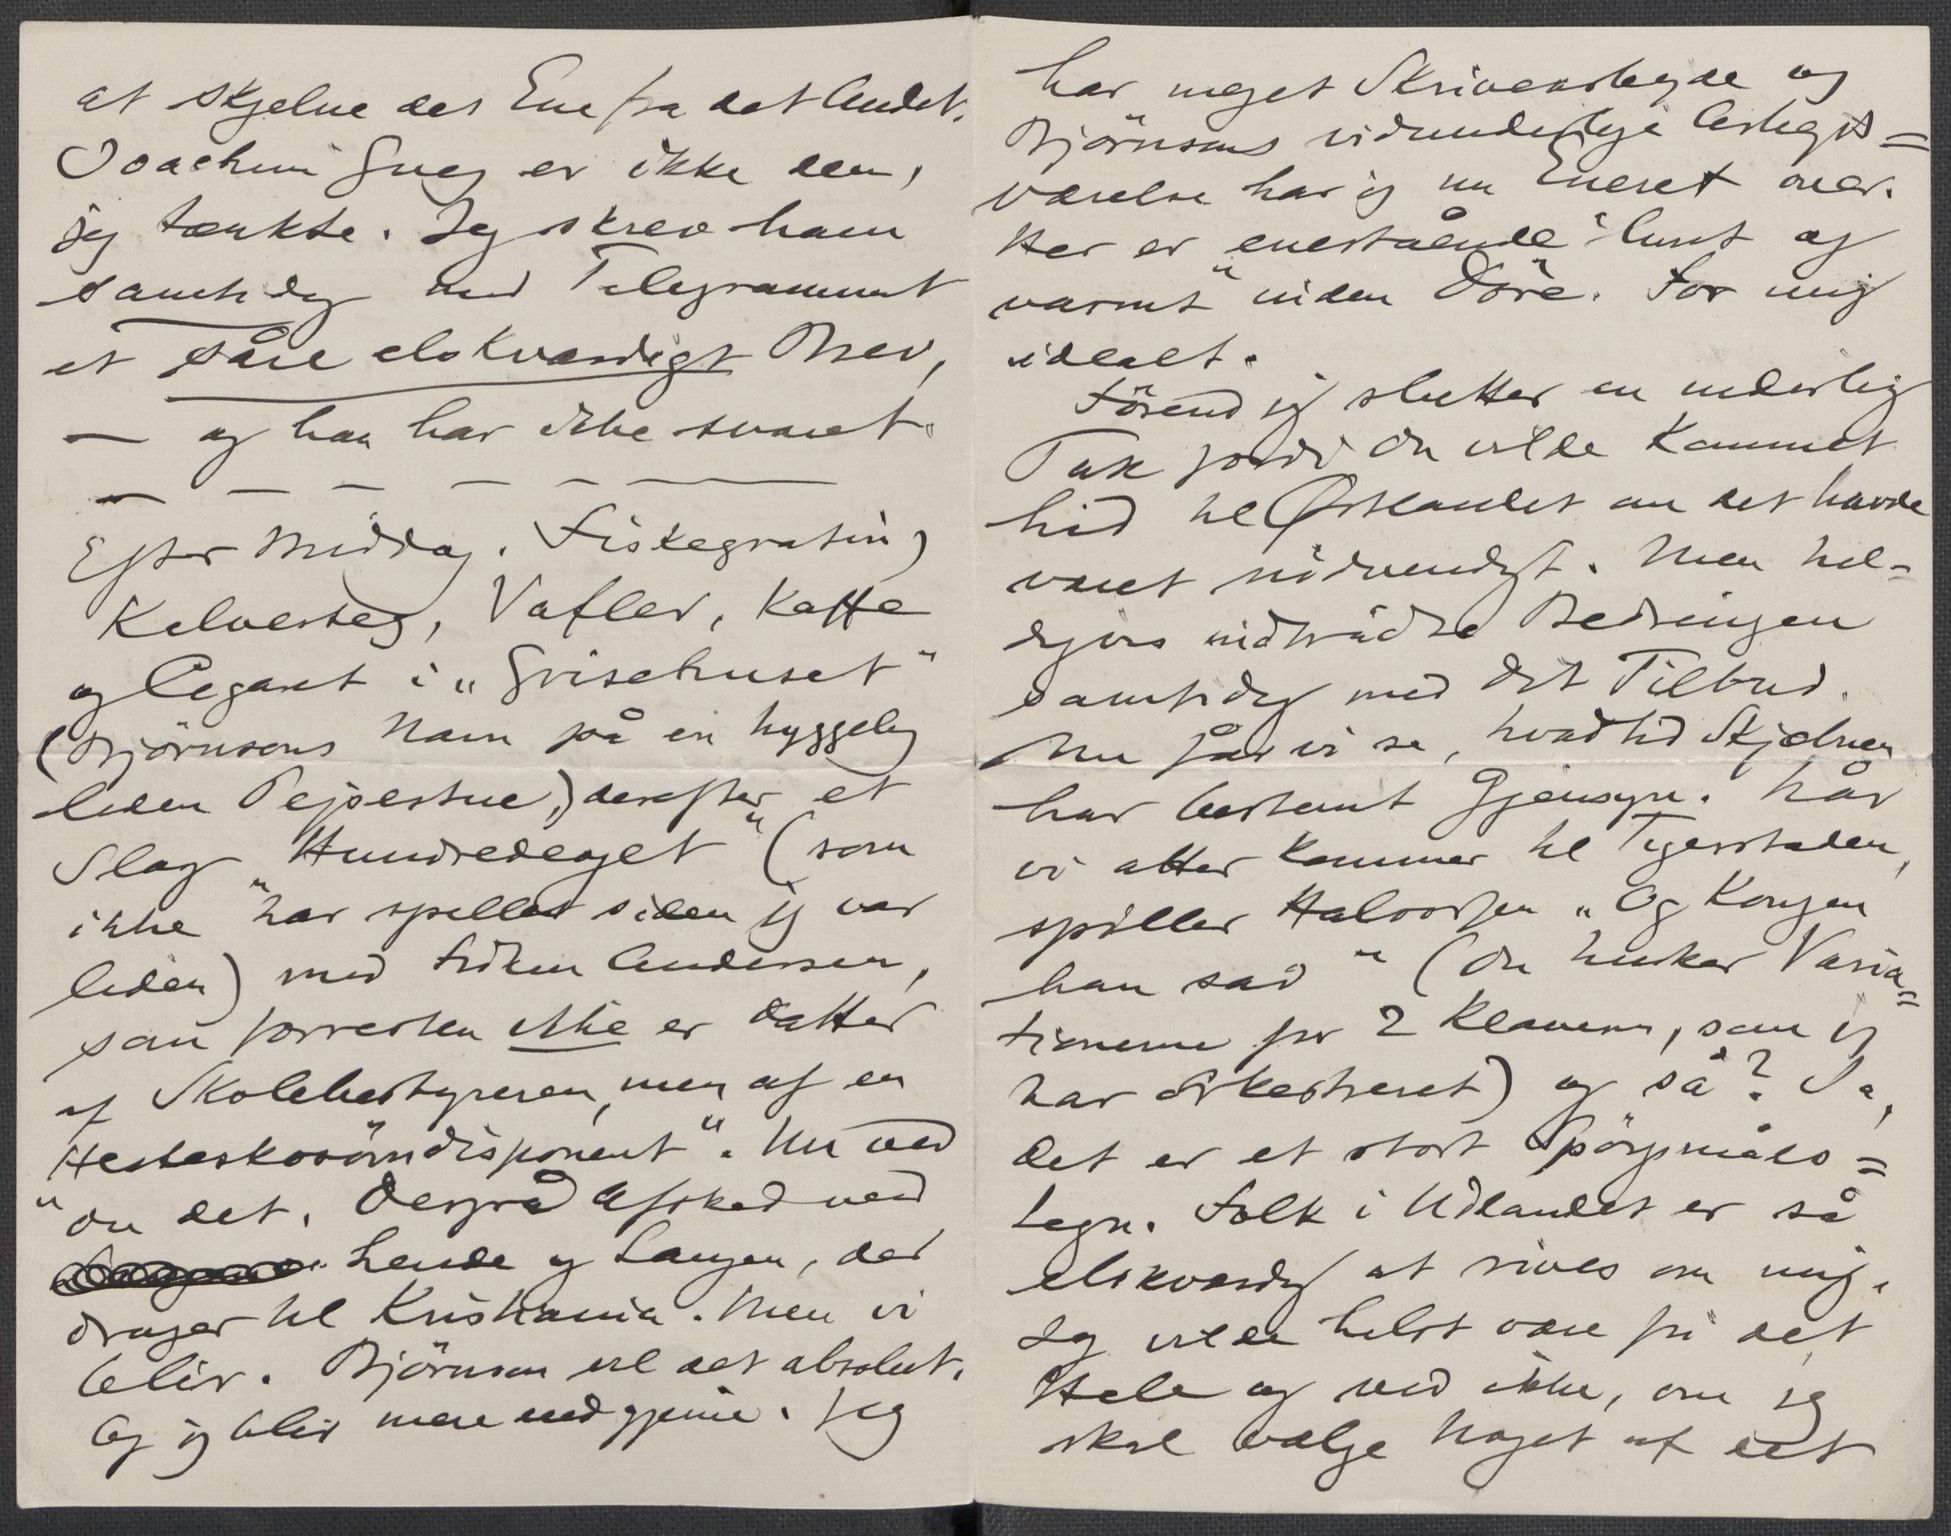 at skjelne det Ene fra det Andet.
Joachim Grieg er ikke den,
jeg tænkte. Jeg skrev ham
samtidig med Telegrammet
et såre elskværdigt Brev,
— og han har ikke svaret.
— — — — — —
Efter Middag. Fiskegratin,
Kalvesteg, Vafler, Kaffe
og Cigaret i „Grisehuset"
(Björnsons Navn på en hyggelig
liden Pejsestue,) derefter et
Slag „Hundredeoget" (som
ikke har spillet siden jeg var
liden) med Fröken Andersen,
som forresten ikke er Datter
af Skolebestyreren, men af en
„Hesteskosömdisponent". Nu ved
du det. Derpå Afsked med
hende og Langen, der
drager til Kristiania. Men vi
bliver. Björnson vil det absolut.
Og jeg blir mere end gjerne. Jeg
har meget Skrivearbejde og
Björnsons vidunderlige Arbejds=
værelse har jeg nu Eneret over.
Her er enestående lunt og
varmt inden Döre. For mig
idealt.
Förend jeg slutter en inderlig
Tak fordi Du vilde kommet
hid til Østlandet om det havde
været nödvendigt. Men hel-
digvis indtrådte Bedringen
samtidig med dit Tilbud.
Nu får vi se, hvad tid Skjæbnen
har bestemt Gjensyn. Når
vi atter kommer til Tigerstaden,
spiller Halvorsen „Og Kongen
han sad" (Du husker Varia=
tionerne for 2 Klaverer, som jeg
har orkestreret) og så? Ja,
det er et stort Spörgsmåls=
tegn. Folk i Udlandet er så
elskværdig at rives om mig.
Jeg vilde helst være fri det
Hele og ved ikke, om jeg
skal vælge Noget af det